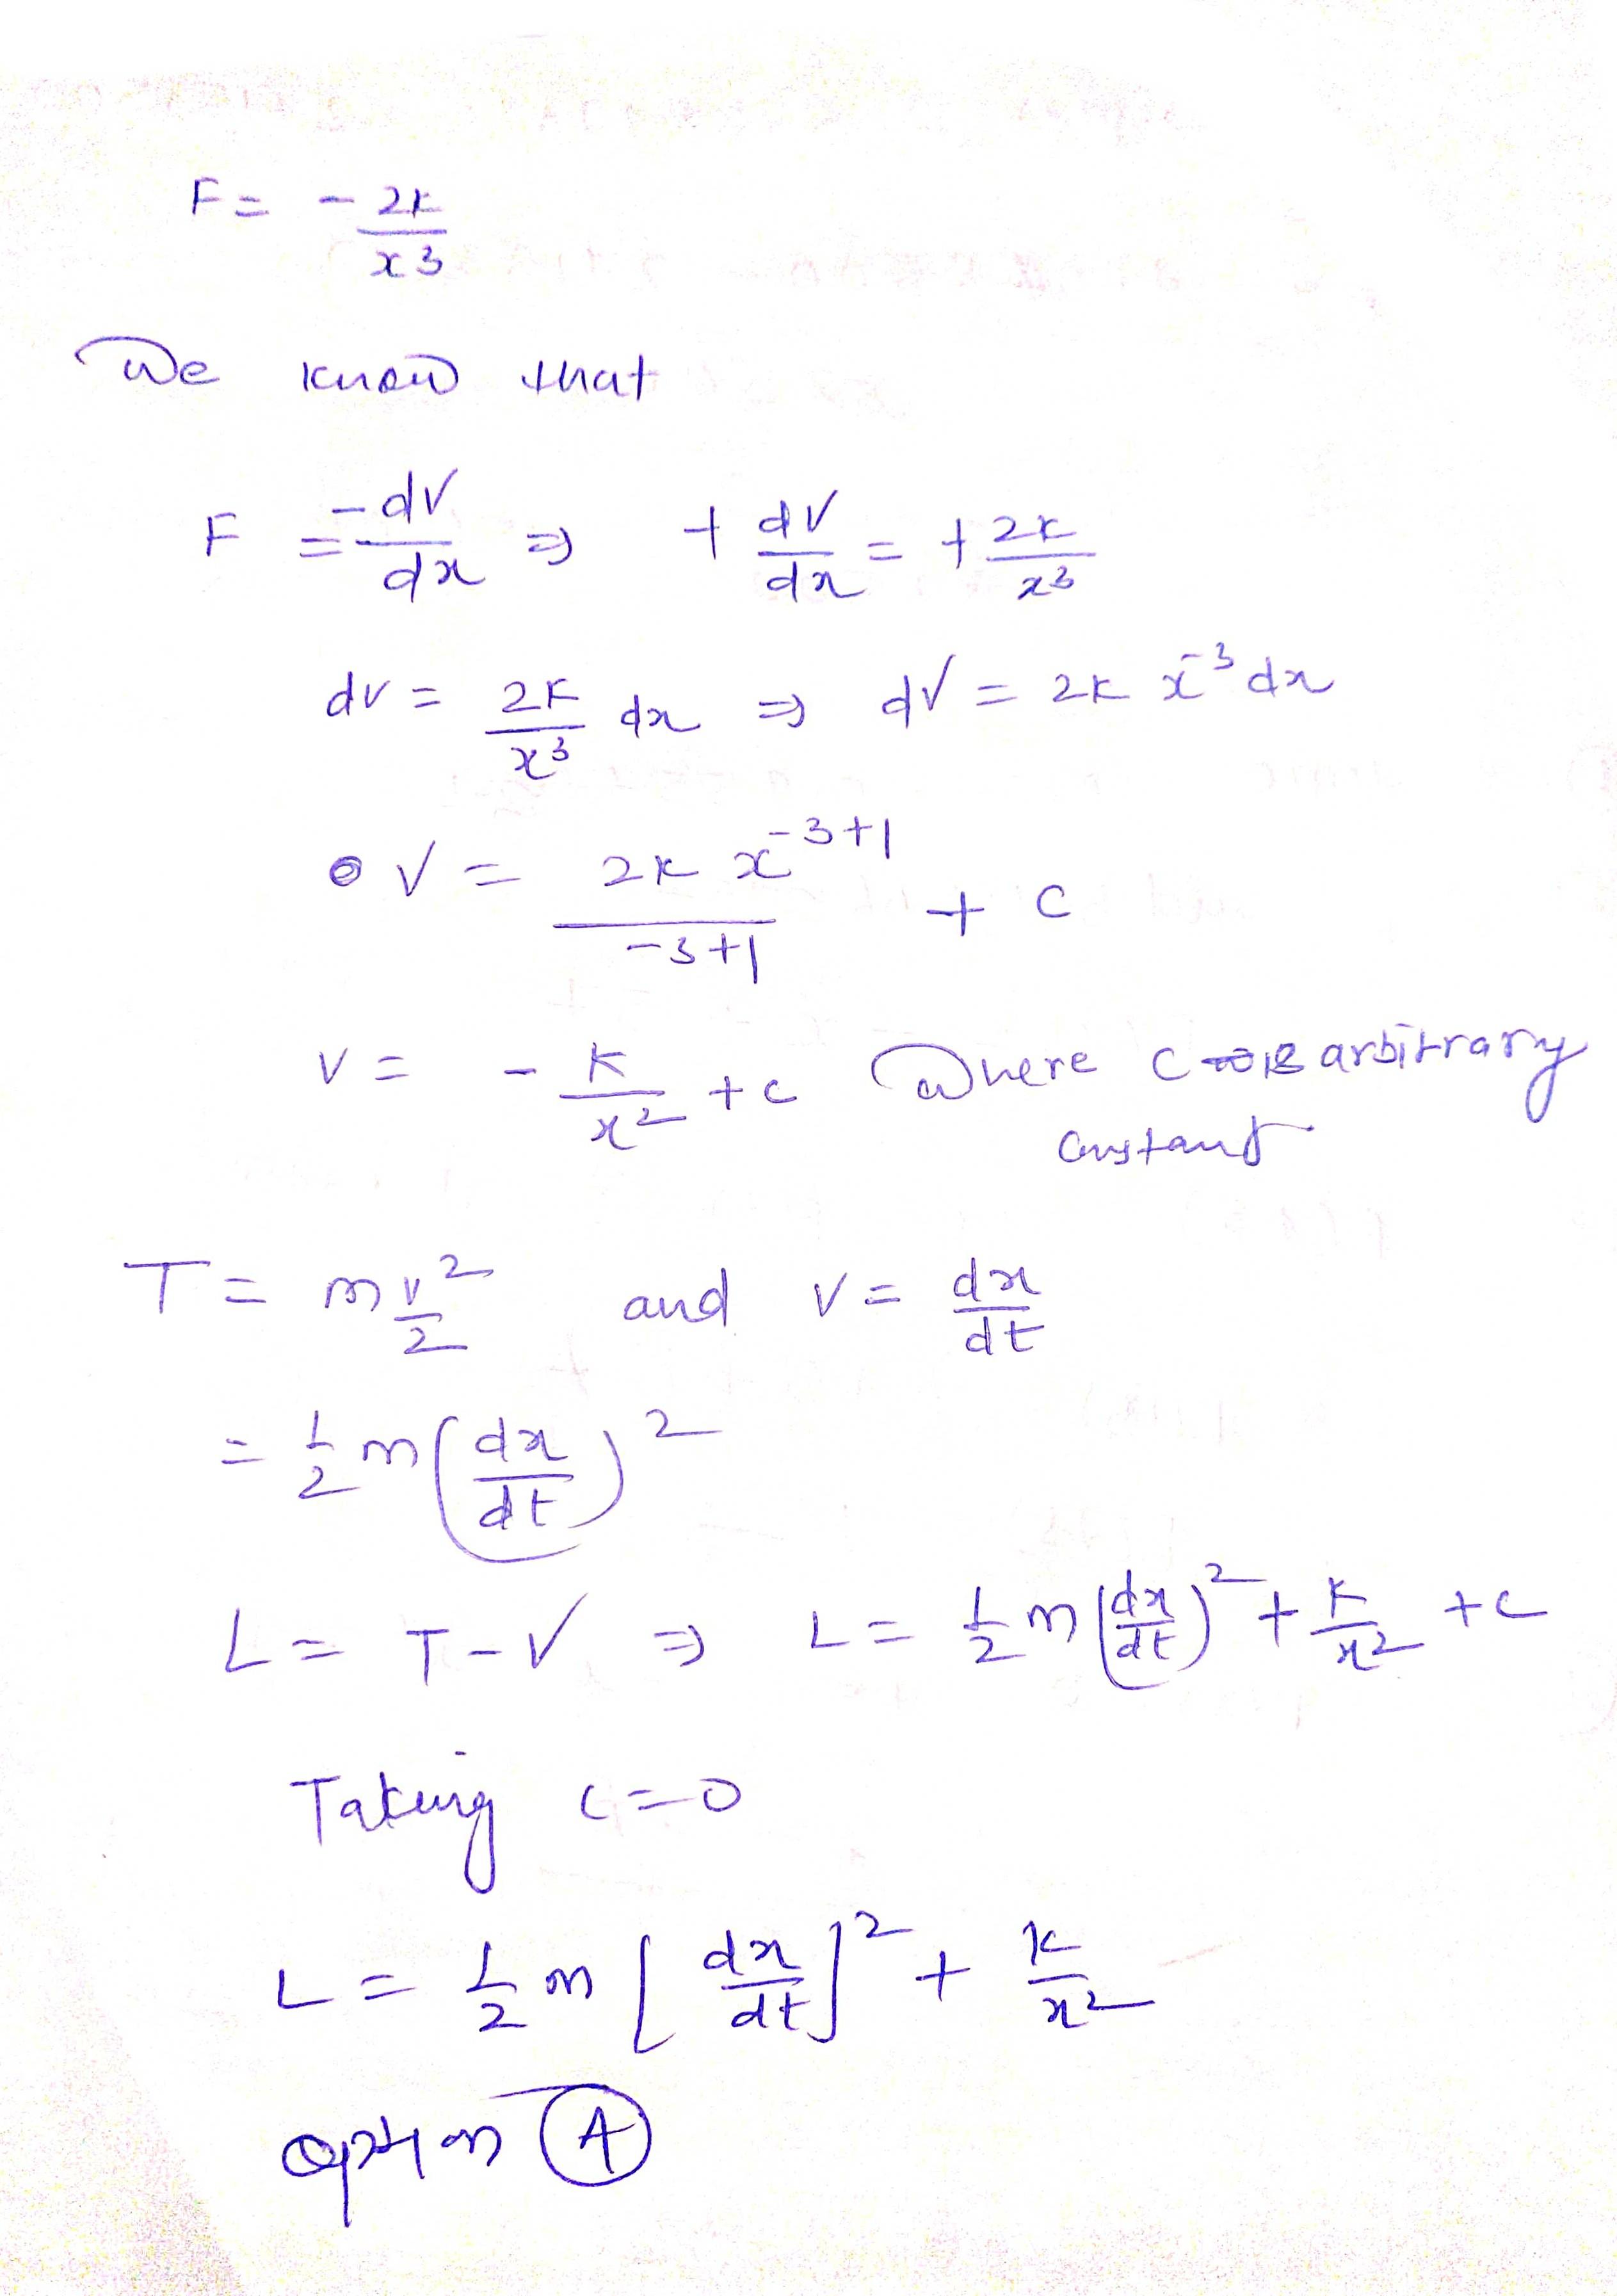 F = - 2K / x³
We know that
F = -dV/dx ⇒ + dV/dx = + 2K/x³
dv = 2K/x³ dx ⇒ dV = 2K x⁻³ dx
V = 2K x⁻³⁺¹ / -3+1 + C
V = - K/x² + c Where C is arbitrary
Constant
T = m v²/2 and v = dx/dt
= 1/2 m (dx/dt)²
L = T - V ⇒ L = 1/2 m (dx/dt)² + K/x² + c
Taking c = 0
L = 1/2 m [dx/dt]² + K/x²
option A